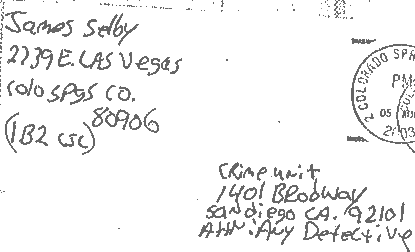 James Selby
2739 E. LAS Vegas
Colo spgs co.
80906
(1B2 CSC)
COLORADO SPR
PM
05
2003
Crime unit
1401 BRodway
San diego CA. 92101
Attn: Any Detective